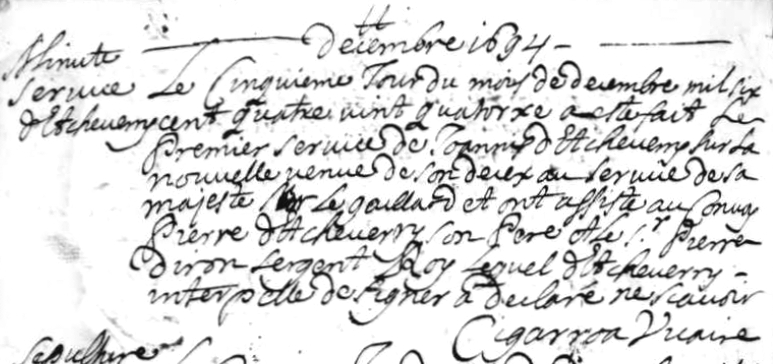 decembre 1694
Minute
service
d'Etcheverry
Le Cinquieme Jour du mois de decembre mil six
cent quatre vint quatorze a este fait Le
Premier service de Joannis d'Etcheverry sur La
nouvelle venue de son decex au service de sa
majeste sur Le gaillard et ont assiste au convoy
Pierre d'Etcheverry son Pere et le s.r Pierre
Diron sergent Roy Lequel d'Etcheverry
interpelle de signer a declaré ne scavoir
Cigarroa Vicaire
sepulture